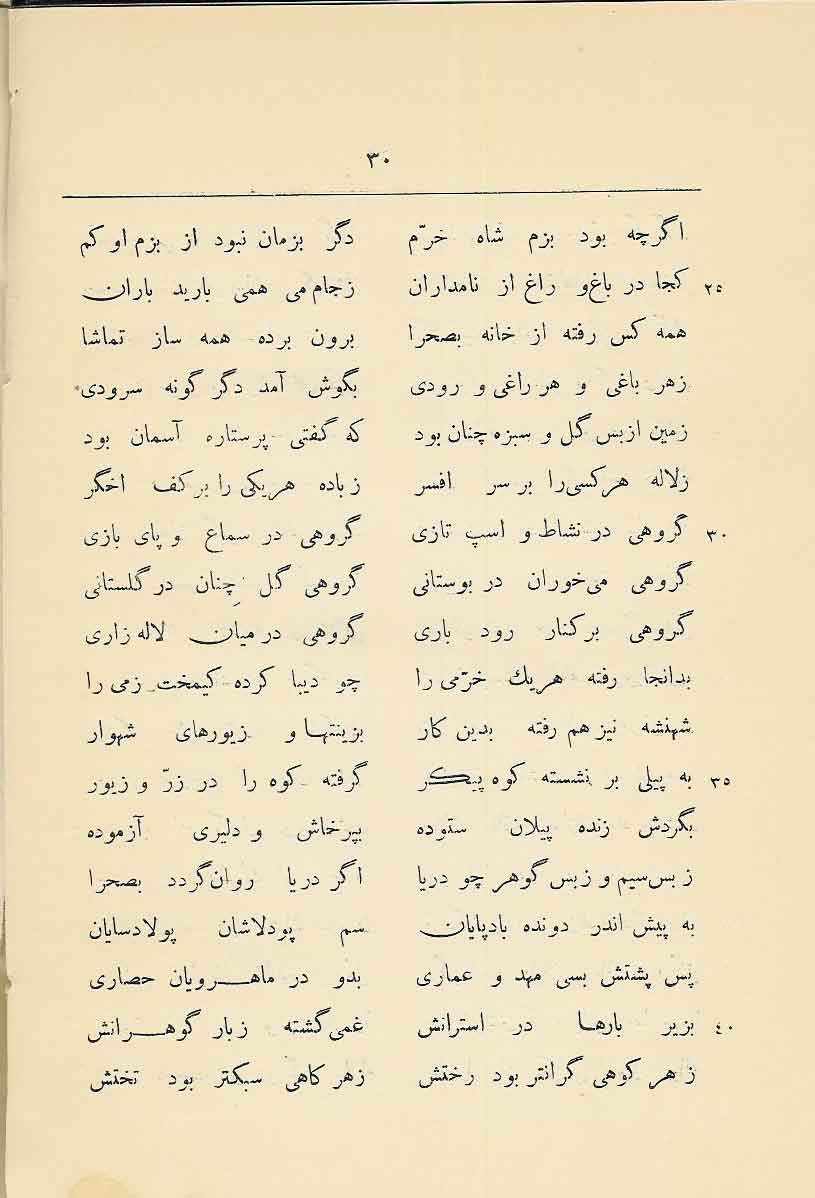 ۳۰
اگرچه بود بزم شاه خرّم دگر بزمان نبود از بزم او کم
۲۵ کجا در باغ و راغ از نامداران زجام می همی بارید باران
همه کس رفته از خانه بصحرا برون برده همه ساز تماشا
زهر باغی و هر راغی و رودی بگوش آمد دگر گونه سرودی
زمین از بس گل و سبزه چنان بود که گفتی پرستاره آسمان بود
زلاله هرکسی را بر سر افسر زباده هریکی را بر کف اخگر
۳۰ گروهی در نشاط و اسپ تازی گروهی در سماع و پای بازی
گروهی می‌خوران در بوستانی گروهی گل چِنان در گلستانی
گروهی بر کنار رود باری گروهی در میان لاله زاری
بدانجا رفته هریك خرّمی را چو دیبا کرده کیمخت زمی را
شهنشه نیز هم رفته بدین کار بزینتها و زیورهای شهوار
۳۵ به پیلی بر نشسته کوه پیکر گرفته کوه را در زرّ و زیور
بگردش زنده پیلان ستوده بپرخاش و دلیری آزموده
زبس سیم و زبس گوهر چو دریا اگر دریا روان گردد بصحرا
به پیش اندر دونده بادپایان سم پودلاشان پولادسایان
پس پشتش بسی مهد و عماری بدو در ماهرویان حصاری
٤٠ بزیر بارها در استرانش غمی گشته زبار گوهرانش
زهر کوهی گرانتر بود رختش زهر کاهی سبکتر بود تختش